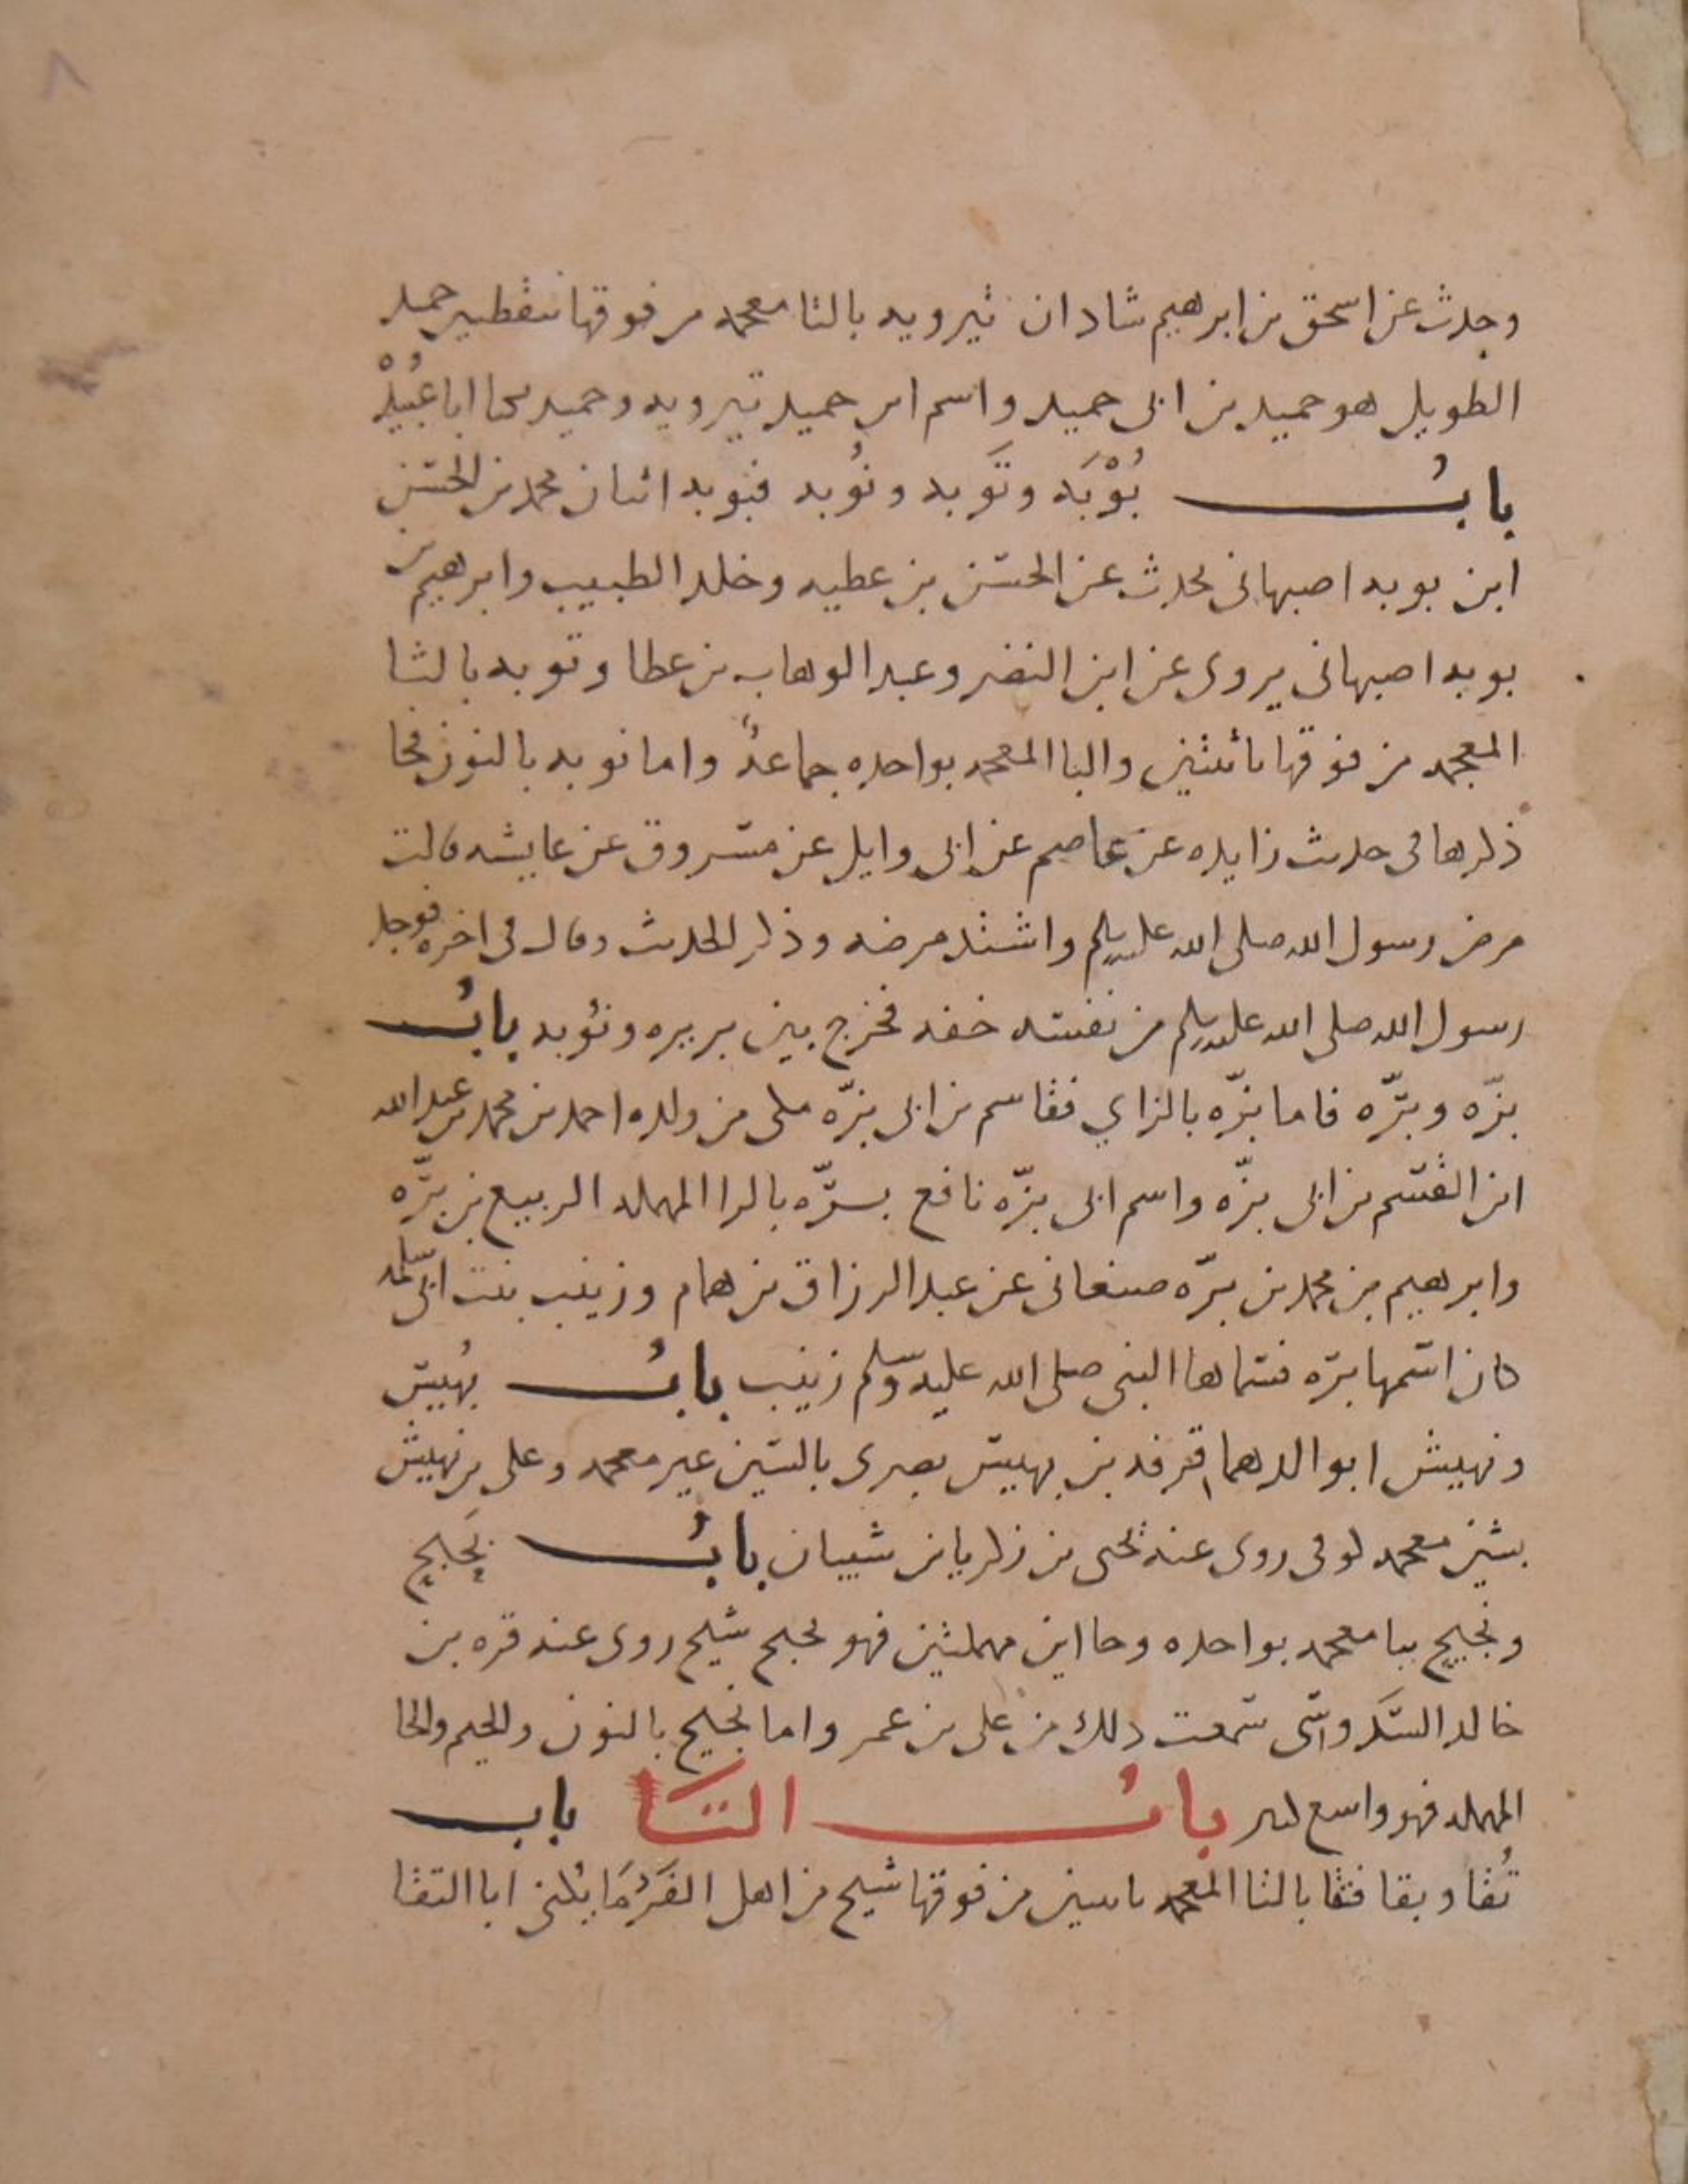 ٨
وحدث عن اسحق بن ابرهيم شاذان تيرويه بالتا معجمه من فوقها بنقطتين حميد
الطويل هو حميد بن ابي حميد واسم ابي حميد تيرويه وحميد يكنا ابا عُبَيْدْ
بابُ بُوْبَه وتَوبه ونُوبه فبوبه اثنان محمد بن الحسن
ابن بوبه اصبهاني يحدث عن الحسن بن عطيه وخلد الطبيب وابرهيم بن
بوبه اصبهاني يروى عن ابن النضر وعبد الوهاب بن عطا وتوبه بالتا
المعجمه من فوقها باثنتين والبا المعجمه بواحده جماعةً واما نوبه بالنون فجا
ذكرها في حديث زايده عن عاصم عن ابي وايل عن مسروق عن عايشه قالت
مرض رسول الله صلى الله عليه وسلم واشتد مرضه وذكر الحديث وقال في اخره فوجد
رسول الله صلى الله عليه وسلم من نفسه خفه فخرج بين بريره ونُوبه بابُ
بزّه وبرّه فاما بزّه بالزاي فقاسم بن ابي بزّه مكي من ولده احمد بن محمد بن عبد الله
ابن القسم بن ابي بزّه واسم ابي بزّه نافع برّه بالرا المهمله الربيع بن برّه
وابرهيم بن محمد بن برّه صنعاني عن عبد الرزاق بن همام وزينب بنت ابي سلمه
كان اسمها برّه فسماها النبي صلى الله عليه وسلم زينب بابُ بُهيس
ونهيش ابو الدهما قرفه بن بهيس بصرى بالسين غير معجمه وعلى بن نهيش
بشين معجمه كوفي روى عنه يحيى بن زكريا بن شيبان بابُ بَحبح
ونجيح ببا معجمه بواحده وحااين مهملتين فهو بحبح شيخ روى عنه قره بن
خالد السَّدوسي سمعت ذلك من علي بن عمر واما نجيح بالنون والجيم والحا
المهمله فهو واسع كثير بابُ التَا باب
تُقا وبقا فتقا بالتا المعجمه باثنين من فوقها شيخ من اهل الفَرَمَا يُكنى ابا التقا